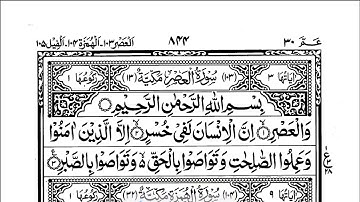 عـمّ ٣٠ ٨٤٤ العصر ١٠٣، الهمزة ١٠٤، الفيل ١٠٥
اٰيَاتُهَا ٣ (١٠٣) سُوْرَةُ الْعَصْرِ مَكِّيَّةٌ (١٣) رُكُوْعُهَا ١
بِسْمِ اللّٰهِ الرَّحْمٰنِ الرَّحِيْمِ
وَالْعَصْرِ ۝١ اِنَّ الْاِنْسَانَ لَفِيْ خُسْرٍ ۝٢ اِلَّا الَّذِيْنَ اٰمَنُوْا
وَعَمِلُوا الصّٰلِحٰتِ وَتَوَاصَوْا بِالْحَقِّ ۙ وَتَوَاصَوْا بِالصَّبْرِ ۝٣
ع ١ ٢٨
اٰيَاتُهَا ٩ (١٠٤) سُوْرَةُ الْهُمَزَةِ مَكِّيَّةٌ (٣٢) رُكُوْعُهَا ١